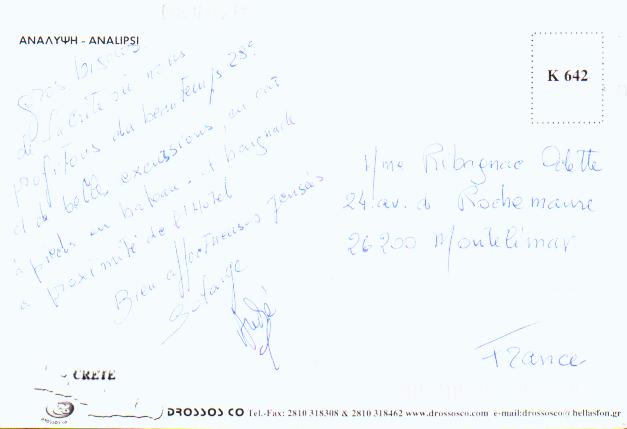 ΑΝΑΛΥΨΗ - ANALIPSI
K 642
Gros bisous
de la crète où nous
profitons du beau temps 28°
et de belle excursions, en car
à pieds en bateau - et baignade
a proximité de l'Hotel
Bien affectueuses pensées
Mme Ribagnac Odette
24 av. de Rochemaure
26200 Montelimar
France
CRETE
DROSSOS CO Tel.-Fax: 2810 318308 & 2810 318462 www.drossosco.com e-mail:drossosco@hellasfon.gr